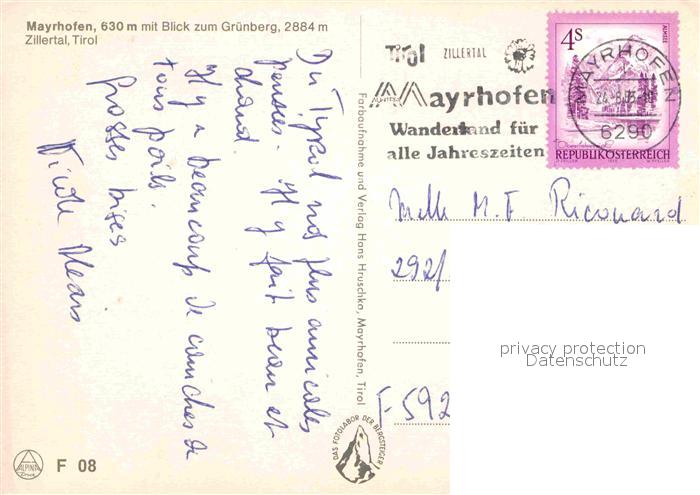 Mayrhofen, 630 m mit Blick zum Grünberg, 2884 m
Zillertal, Tirol
Du Tyrol nos plus amicales
pensées. Il y fait beau et
chaud.
Il y a beaucoup de couches de
tous poils.
Grosses bises
Nicole
Farbaufnahme und Verlag Hans Hruschka, Mayrhofen, Tirol
DAS FOTOLABOR DER BERGSTEIGER
ALPINA
F 08
Tirol ZILLERTAL
Mayrhofen
Wanderland für
alle Jahreszeiten
4S
ALMSEE
MAYRHOFEN
6290
REPUBLIK ÖSTERREICH
Melle M. F. Ricouard
292/
F-592
privacy protection
Datenschutz